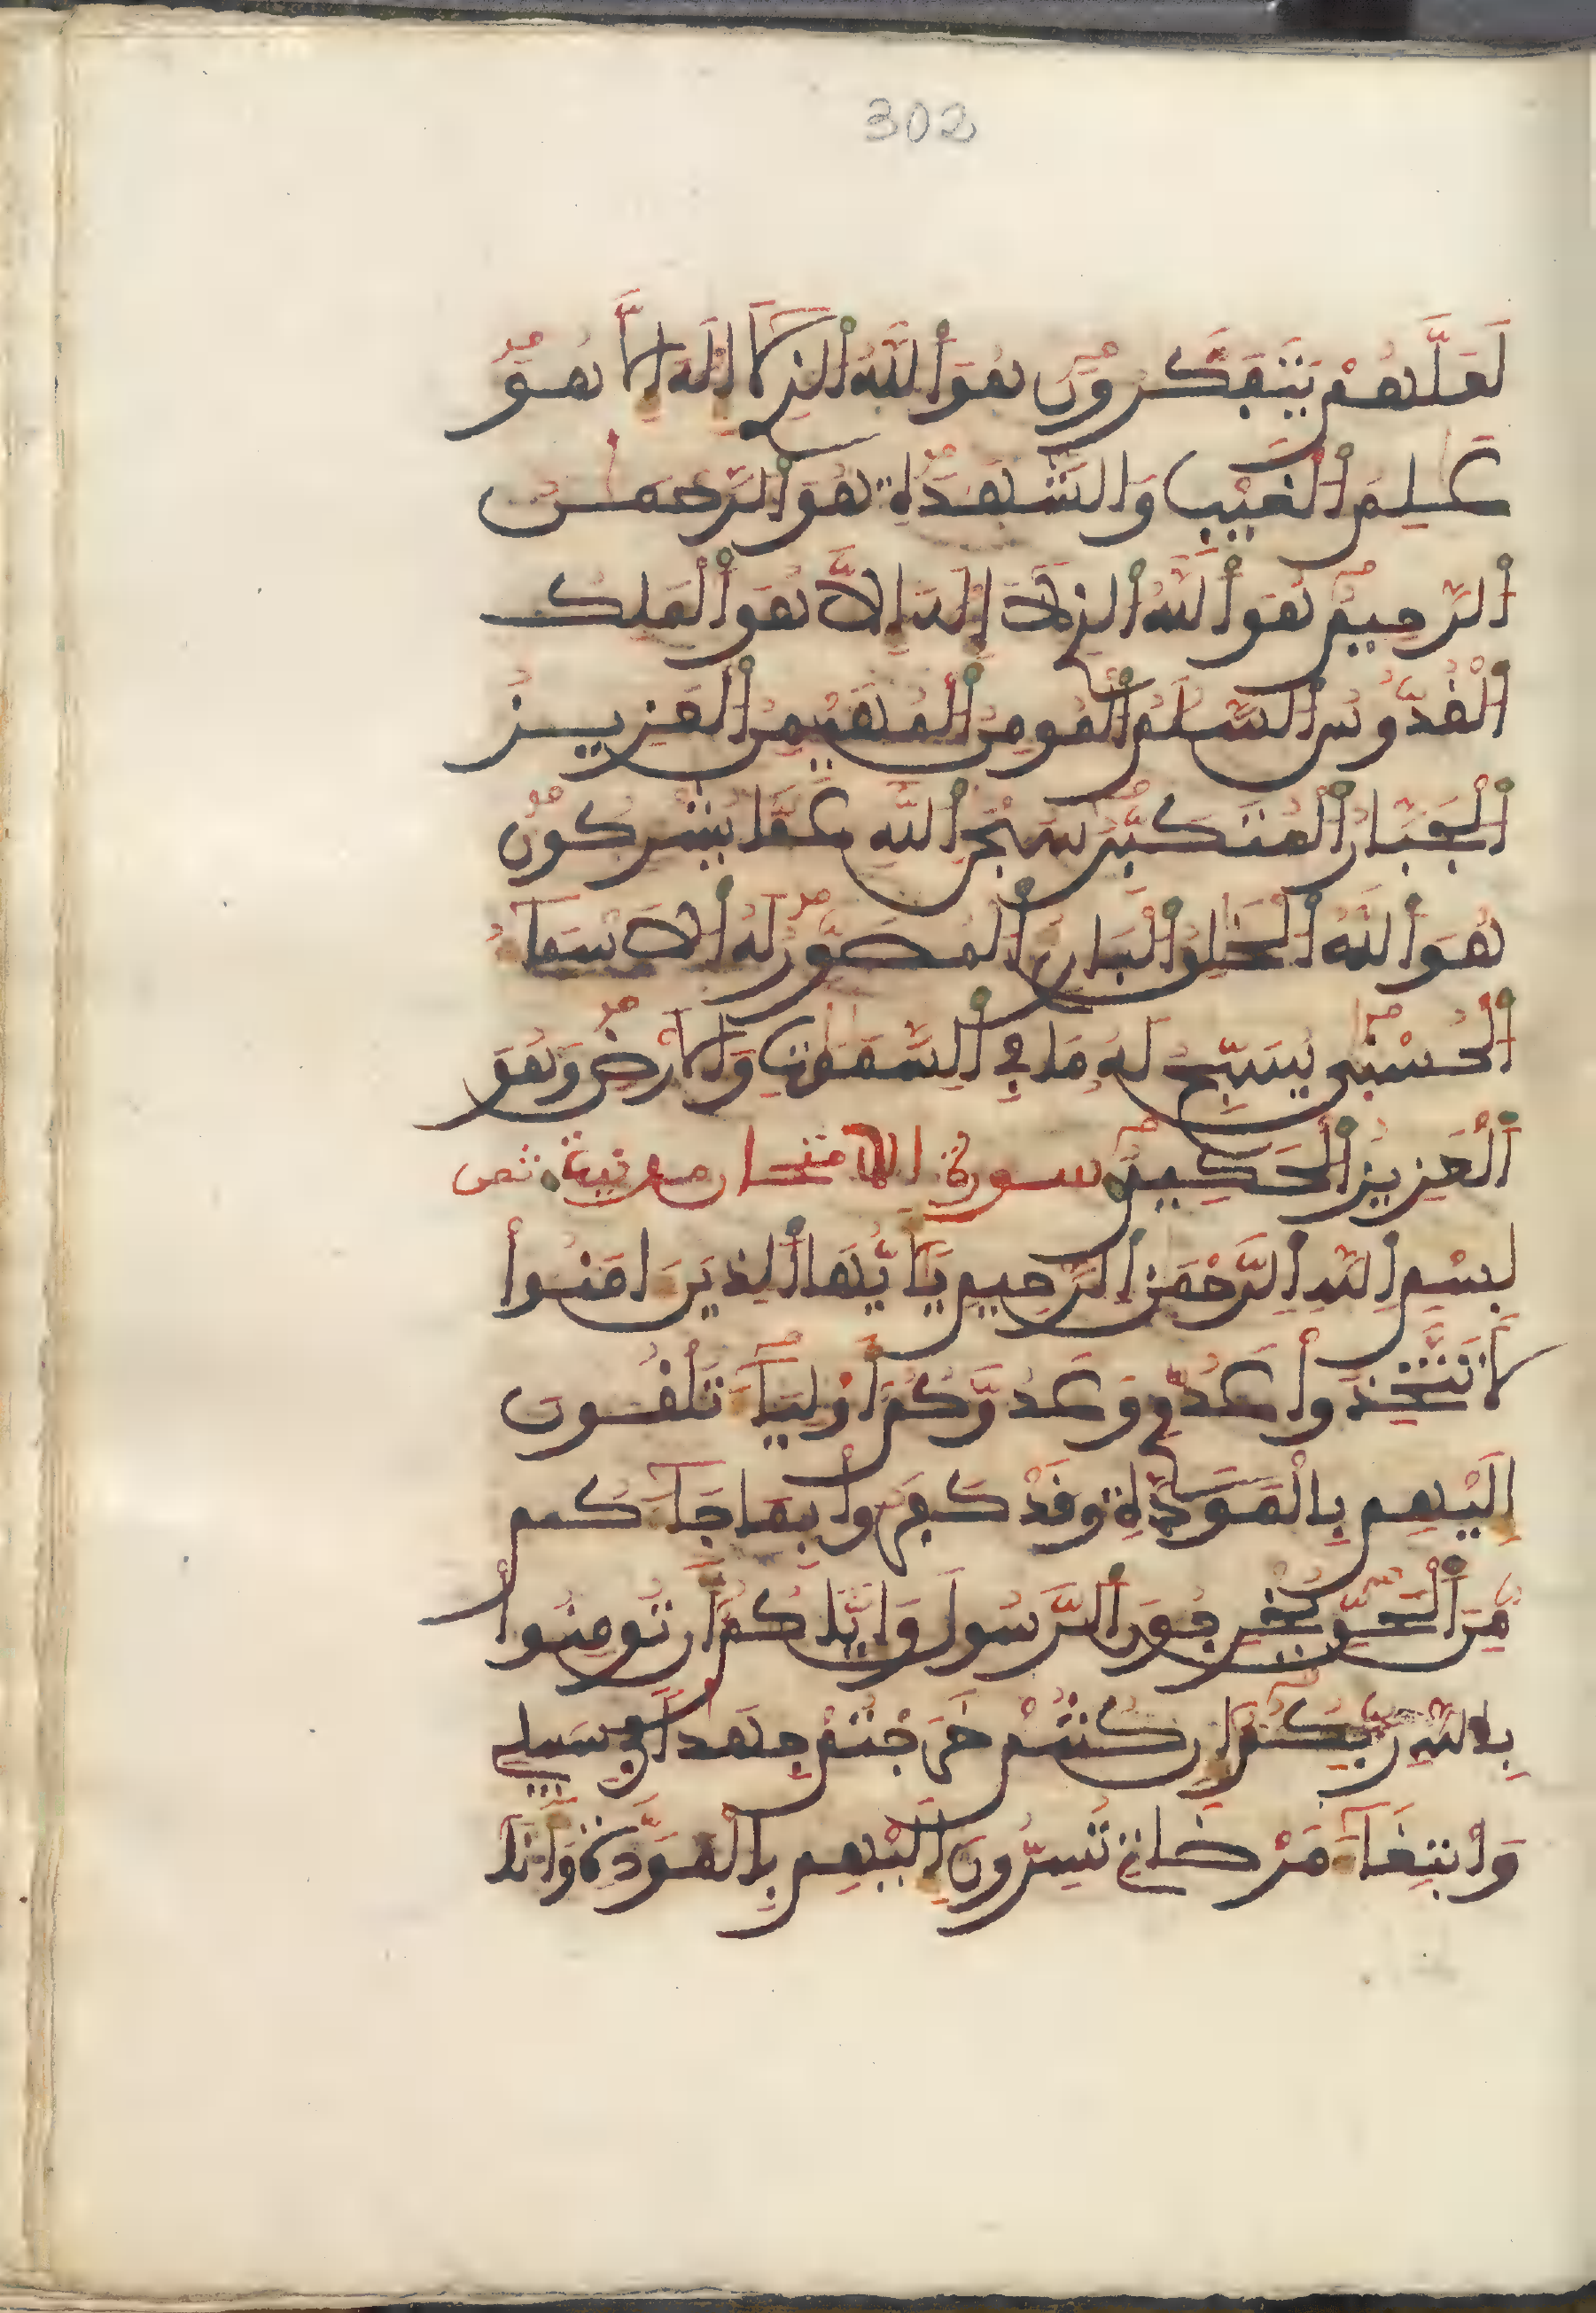 302
لَعَلَّهُمْ يَتَفَكَّرُونَ هُوَ اَللَّهُ اُلذِے لَآ إِلَٰهَ إِلَّا هُوَ
عَٰلِمُ اُلْغَيْبِ وَالشَّهَٰدَةِ هُوَ اَلرَّحْمَٰنُ
اُلرَّحِيمُ هُوَ اَللَّهُ اُلذِے لَآ إِلَٰهَ إِلَّا هُوَ اَلْمَلِكُ
اُلْقُدُّوسُ اُلسَّلَٰمُ اُلْمُومِنُ اُلْمُهَيْمِنُ اُلْعَزِيزُ
اُلْجَبَّارُ اُلْمُتَكَبِّرُ سُبْحَٰنَ اَللَّهِ عَمَّا يُشْرِكُونَ
هُوَ اَللَّهُ اُلْخَٰلِقُ اُلْبَارِئُ اُلْمُصَوِّرُ لَهُ اُلَاسْمَآءُ
اُلْحُسْنَىٰ يُسَبِّحُ لَهُۥ مَا فِے اِلسَّمَٰوَٰتِ وَالَارْضِ وَهُوَ
اَلْعَزِيزُ اُلْحَكِيمُ سورة الامتحان مدنية
بِسْمِ اِللَّهِ اِلرَّحْمَٰنِ اِلرَّحِيمِ يَٰٓأَيُّهَا اَلذِينَ ءَامَنُواْ
لَا تَتَّخِذُواْ عَدُوِّے وَعَدُوَّكُمُۥٓ أَوْلِيَآءَ تُلْقُونَ
إِلَيْهِم بِالْمَوَدَّةِ وَقَدْ كَفَرُواْ بِمَا جَآءَكُم
مِّنَ اَلْحَقِّ يُخْرِجُونَ اَلرَّسُولَ وَإِيَّاكُمُۥٓ أَن تُومِنُواْ
بِاللَّهِ رَبِّكُمُۥٓ إِن كُنتُمْ خَرَجْتُمْ جِهَٰداً فِے سَبِيلِے
وَابْتِغَآءَ مَرْضَاتِے تُسِرُّونَ إِلَيْهِم بِالْمَوَدَّةِ وَأَنَا